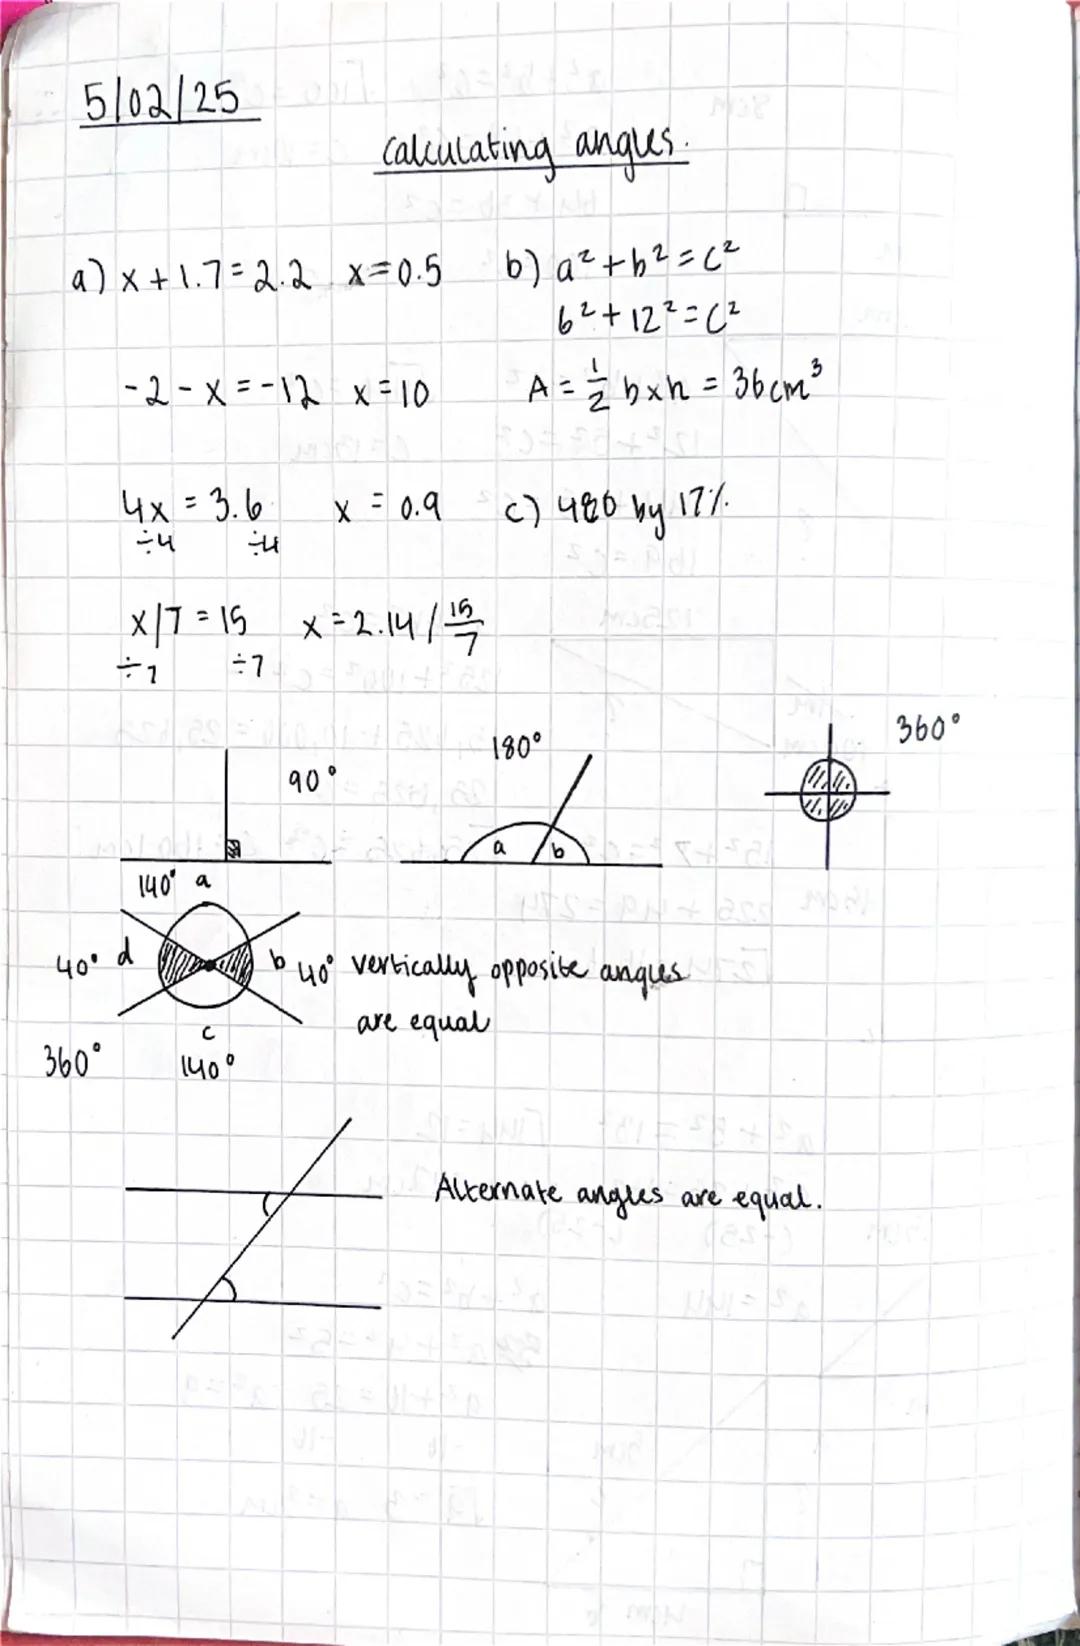 5/02/25
calculating angles.
a) x + 1.7 = 2.2 x = 0.5
b) a² + b² = c²
6² + 12² = c²
-2 - x = -12 x = 10
A = 1/2 b x h = 36cm³
4x = 3.6 x = 0.9
÷4 ÷4
c) 480 by 17%
x/7 = 15 x = 2.14 / 15/7
÷7 ÷7
90°
180°
a b
360°
140° a
40° d b 40°
c
360° 140°
vertically opposite angles
are equal
Alternate angles are equal.